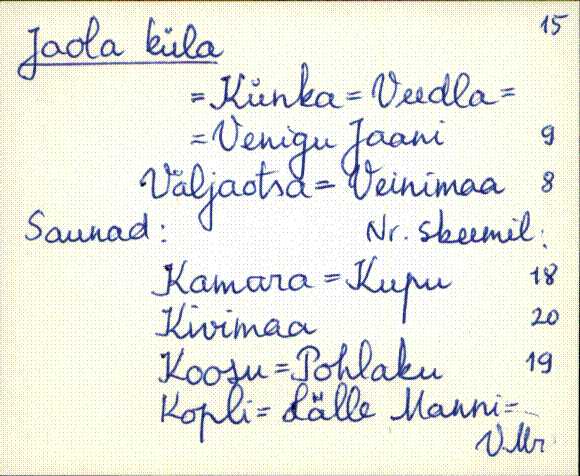 15
Jaola küla
= Künka = Veedla =
= Venigu Jaani 9
Väljaotsa = Veinimaa 8
Saunad: Nr. skeemil:
Kamara = Kupu 18
Kivimaa 20
Koosu = Pohlaku 19
Kopli = Lälle Manni =